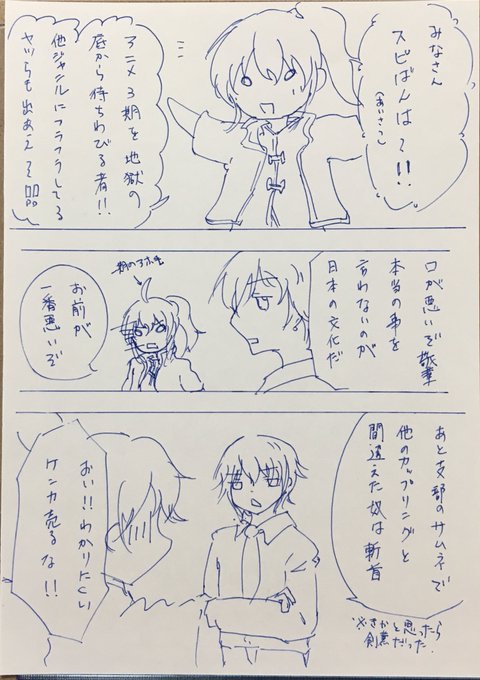 みなさん
スピばんは〜!!
(あいさつ)
アニメ3期を地獄の
底から待ちわびる者!!
他ジャンルにフラフラしてる
ヤツらも出あえ〜
口が悪いぞ敬華
本当の事を
言わないのが
日本の文化だ
一期のアホ毛
お前が
一番悪いぞ
あと支部のサムネで
他のカップリングと
間違えた奴は斬首
※さかと思ったら
創業だった
おい!!わかりにくい
ケンカ売るな!!